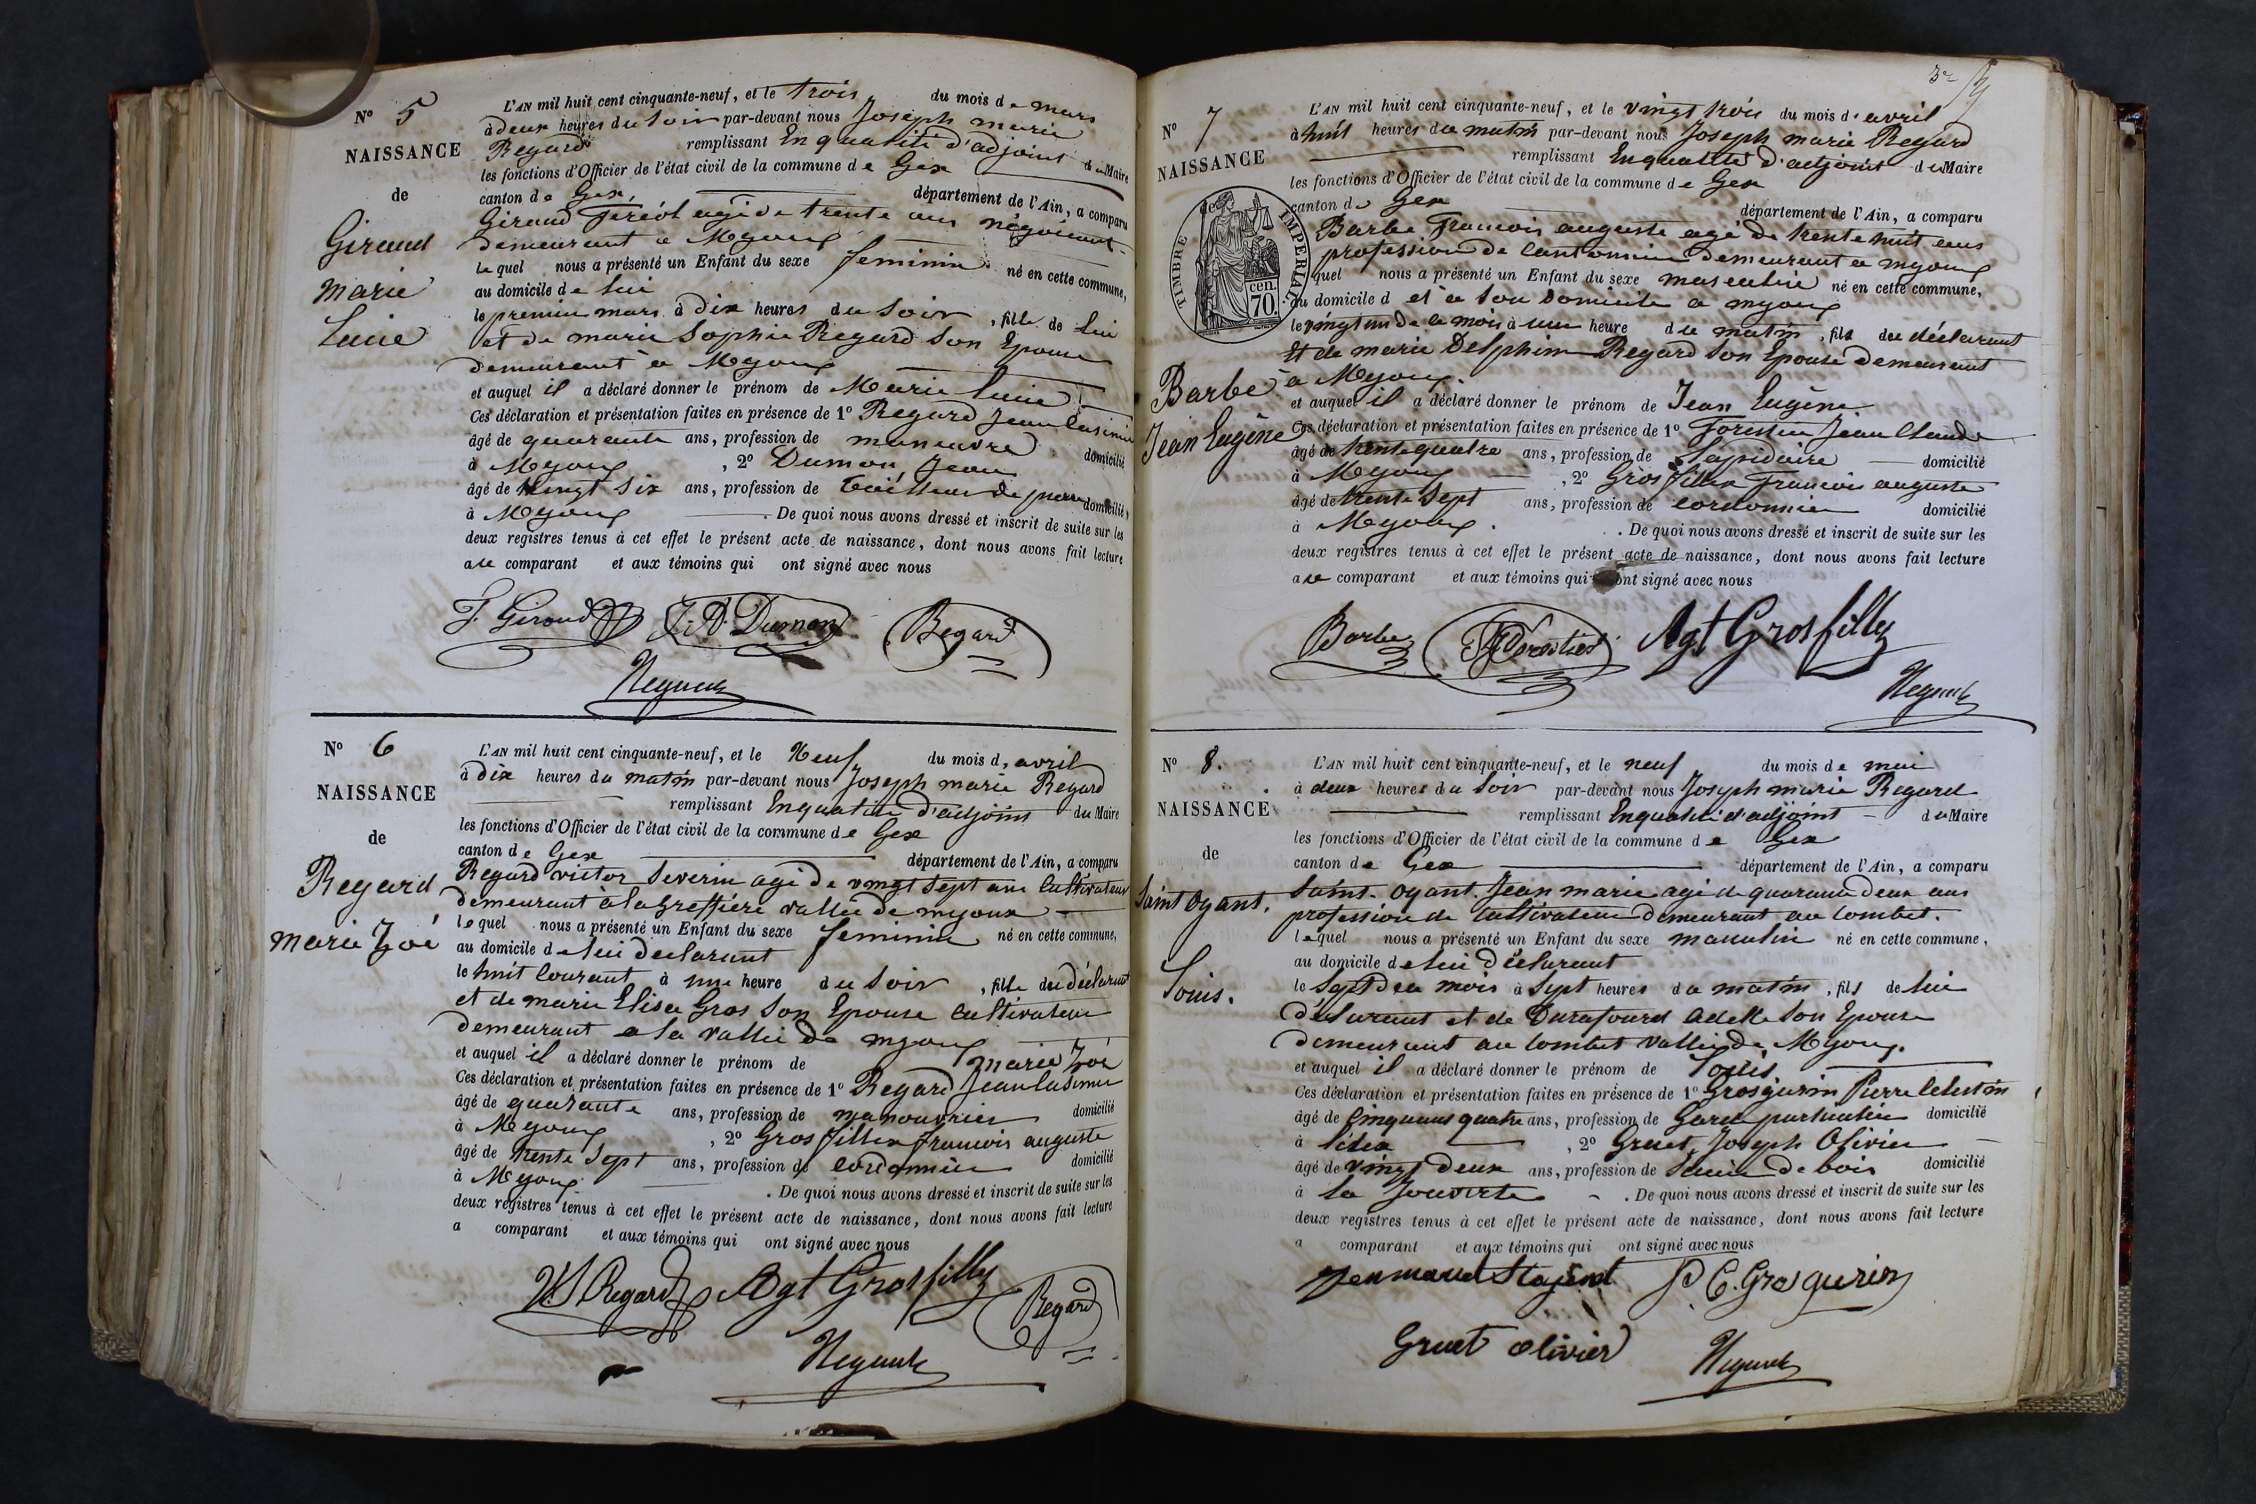 N° 5
NAISSANCE
de
Giroud
marie
Lucie
L'AN mil huit cent cinquante-neuf, et le trois du mois de mars
à deux heures du soir par-devant nous Joseph marie
Regard remplissant En qualité d'adjoint du Maire
les fonctions d'Officier de l'état civil de la commune de Gex
canton de Gex, département de l'Ain, a comparu
Giroud Féréol agé de trente ans négociant
demeurant à Mijoux
lequel nous a présenté un Enfant du sexe feminin né en cette commune,
au domicile de lui
le premier mars à dix heures du soir, fille de lui
et de marie Sophie Regard son Epouse
demeurant à Mijoux
et auquel il a déclaré donner le prénom de Marie Lucie
Ces déclaration et présentation faites en présence de 1° Regard Jean Casimir
âgé de quarante ans, profession de manœuvre domicilié
à Mijoux, 2° Dumon, Jean
âgé de vingt six ans, profession de tailleur de pierre domicilié,
à Mijoux. De quoi nous avons dressé et inscrit de suite sur les
deux registres tenus à cet effet le présent acte de naissance, dont nous avons fait lecture
au comparant et aux témoins qui ont signé avec nous
F. Giroud J. A. Dumon Regard
N° 6
NAISSANCE
de
Regard
marie Zoé
L'AN mil huit cent cinquante-neuf, et le Neuf du mois d'avril
à dix heures du matin par-devant nous Joseph marie Regard
remplissant En qualité d'adjoint du Maire
les fonctions d'Officier de l'état civil de la commune de Gex
canton de Gex département de l'Ain, a comparu
Regard victor Severin agé de vingt sept ans Cultivateur
demeurant à la Greffière vallée de mijoux
lequel nous a présenté un Enfant du sexe feminin né en cette commune,
au domicile de lui declarant
le huit Courant à une heure du soir, fille du déclarant
et de marie Elisa Gros son Epouse cultivateur
demeurant a la vallée de mijoux
et auquel il a déclaré donner le prénom de marie Zoé
Ces déclaration et présentation faites en présence de 1° Regard Jean Casimir
âgé de quarante ans, profession de manouvrier domicilié
à Mijoux, 2° Grosfillex francois auguste
âgé de trente sept ans, profession de cordonnier domicilié
à Mijoux. De quoi nous avons dressé et inscrit de suite sur les
deux registres tenus à cet effet le présent acte de naissance, dont nous avons fait lecture
a comparant et aux témoins qui ont signé avec nous
V. S. Regard Agt Grosfilley Regard
N° 7
NAISSANCE
TIMBRE IMPERIAL
70 cen.
Barbe
Jean Eugène
L'AN mil huit cent cinquante-neuf, et le vingt trois du mois d'avril
à huit heures du matin par-devant nous Joseph marie Regard
remplissant En qualité d'adjoint du Maire
les fonctions d'Officier de l'état civil de la commune de Gex
canton de Gex département de l'Ain, a comparu
Barbe Francois auguste agé de trente huit ans
profession de cantonnier demeurant a mijoux
quel nous a présenté un Enfant du sexe masculin né en cette commune,
au domicile d et à son domicile a mijoux
le vingt un de ce mois à une heure du matin, fils du déclarant
Et de marie Delphine Regard son Epouse demeurant
à Mijoux.
et auquel il a déclaré donner le prénom de Jean Eugène
Ces déclaration et présentation faites en présence de 1° Forestier Jean Claude
âgé de trente quatre ans, profession de Lapidaire domicilié
à Mijoux, 2° Grosfillex Francois auguste
âgé de trente sept ans, profession de cordonnier domicilié
à Mijoux. De quoi nous avons dressé et inscrit de suite sur les
deux registres tenus à cet effet le présent acte de naissance, dont nous avons fait lecture
au comparant et aux témoins qui ont signé avec nous
Barbe Agt Grosfilley
N° 8.
NAISSANCE
de
Saint oyant.
Louis.
L'AN mil huit cent cinquante-neuf, et le neuf du mois de mai
à deux heures du soir par-devant nous Joseph marie Regard
remplissant En qualité d'adjoint du Maire
les fonctions d'Officier de l'état civil de la commune de Gex
canton de Gex département de l'Ain, a comparu
Saint-oyant Jean marie agé de quarante deux ans
profession de Cultivateur demeurant au Combet.
lequel nous a présenté un Enfant du sexe masculin né en cette commune,
au domicile de lui déclarant
le sept du mois à sept heures du matin, fils de lui
déclarant et de Durafourd Adelle son Epouse
demeurant au Combet vallée de Mijoux.
et auquel il a déclaré donner le prénom de Louis
Ces déclaration et présentation faites en présence de 1° Grosgurin Pierre Celestin
âgé de Cinquante quatre ans, profession de Garde particulier domicilié
à Lélex, 2° Gruet, Joseph Olivier
âgé de vingt deux ans, profession de scieur de bois domicilié
à la. De quoi nous avons dressé et inscrit de suite sur les
deux registres tenus à cet effet le présent acte de naissance, dont nous avons fait lecture
a comparant et aux témoins qui ont signé avec nous
P. C. Grosgurin
Gruet olivier